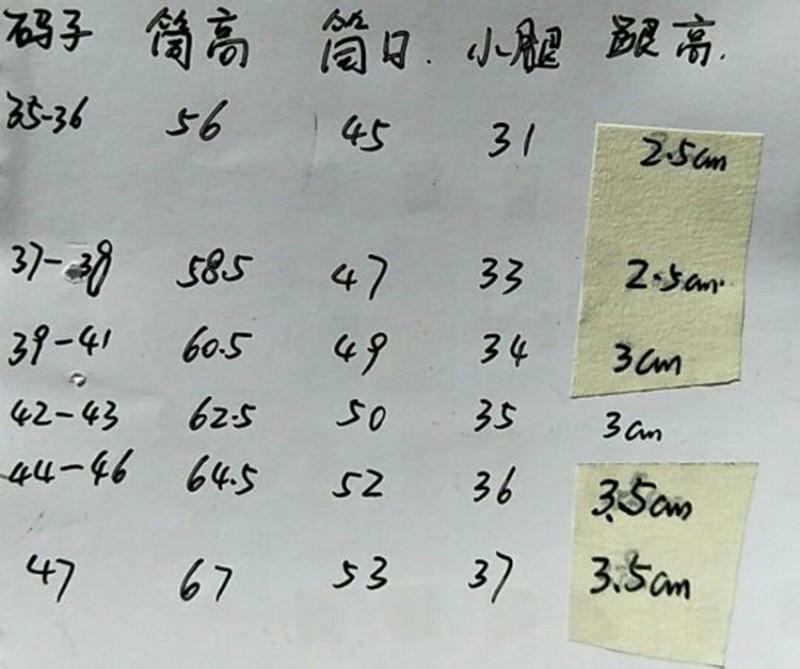 码子 筒高 筒口. 小腿 跟高.
35-36 56 45 31 2.5cm
37-38 58.5 47 33 2.5cm.
39-41 60.5 49 34 3cm
42-43 62.5 50 35 3cm
44-46 64.5 52 36 3.5cm
47 67 53 37 3.5cm